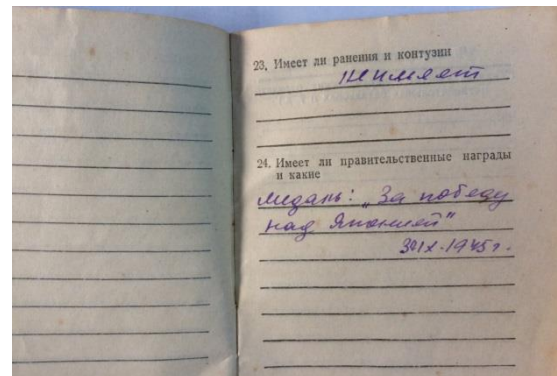 23. Имеет ли ранения и контузии
не имеет
24. Имеет ли правительственные награды
и какие
медаль: „За победу
над Японией"
3/IX-1945г.